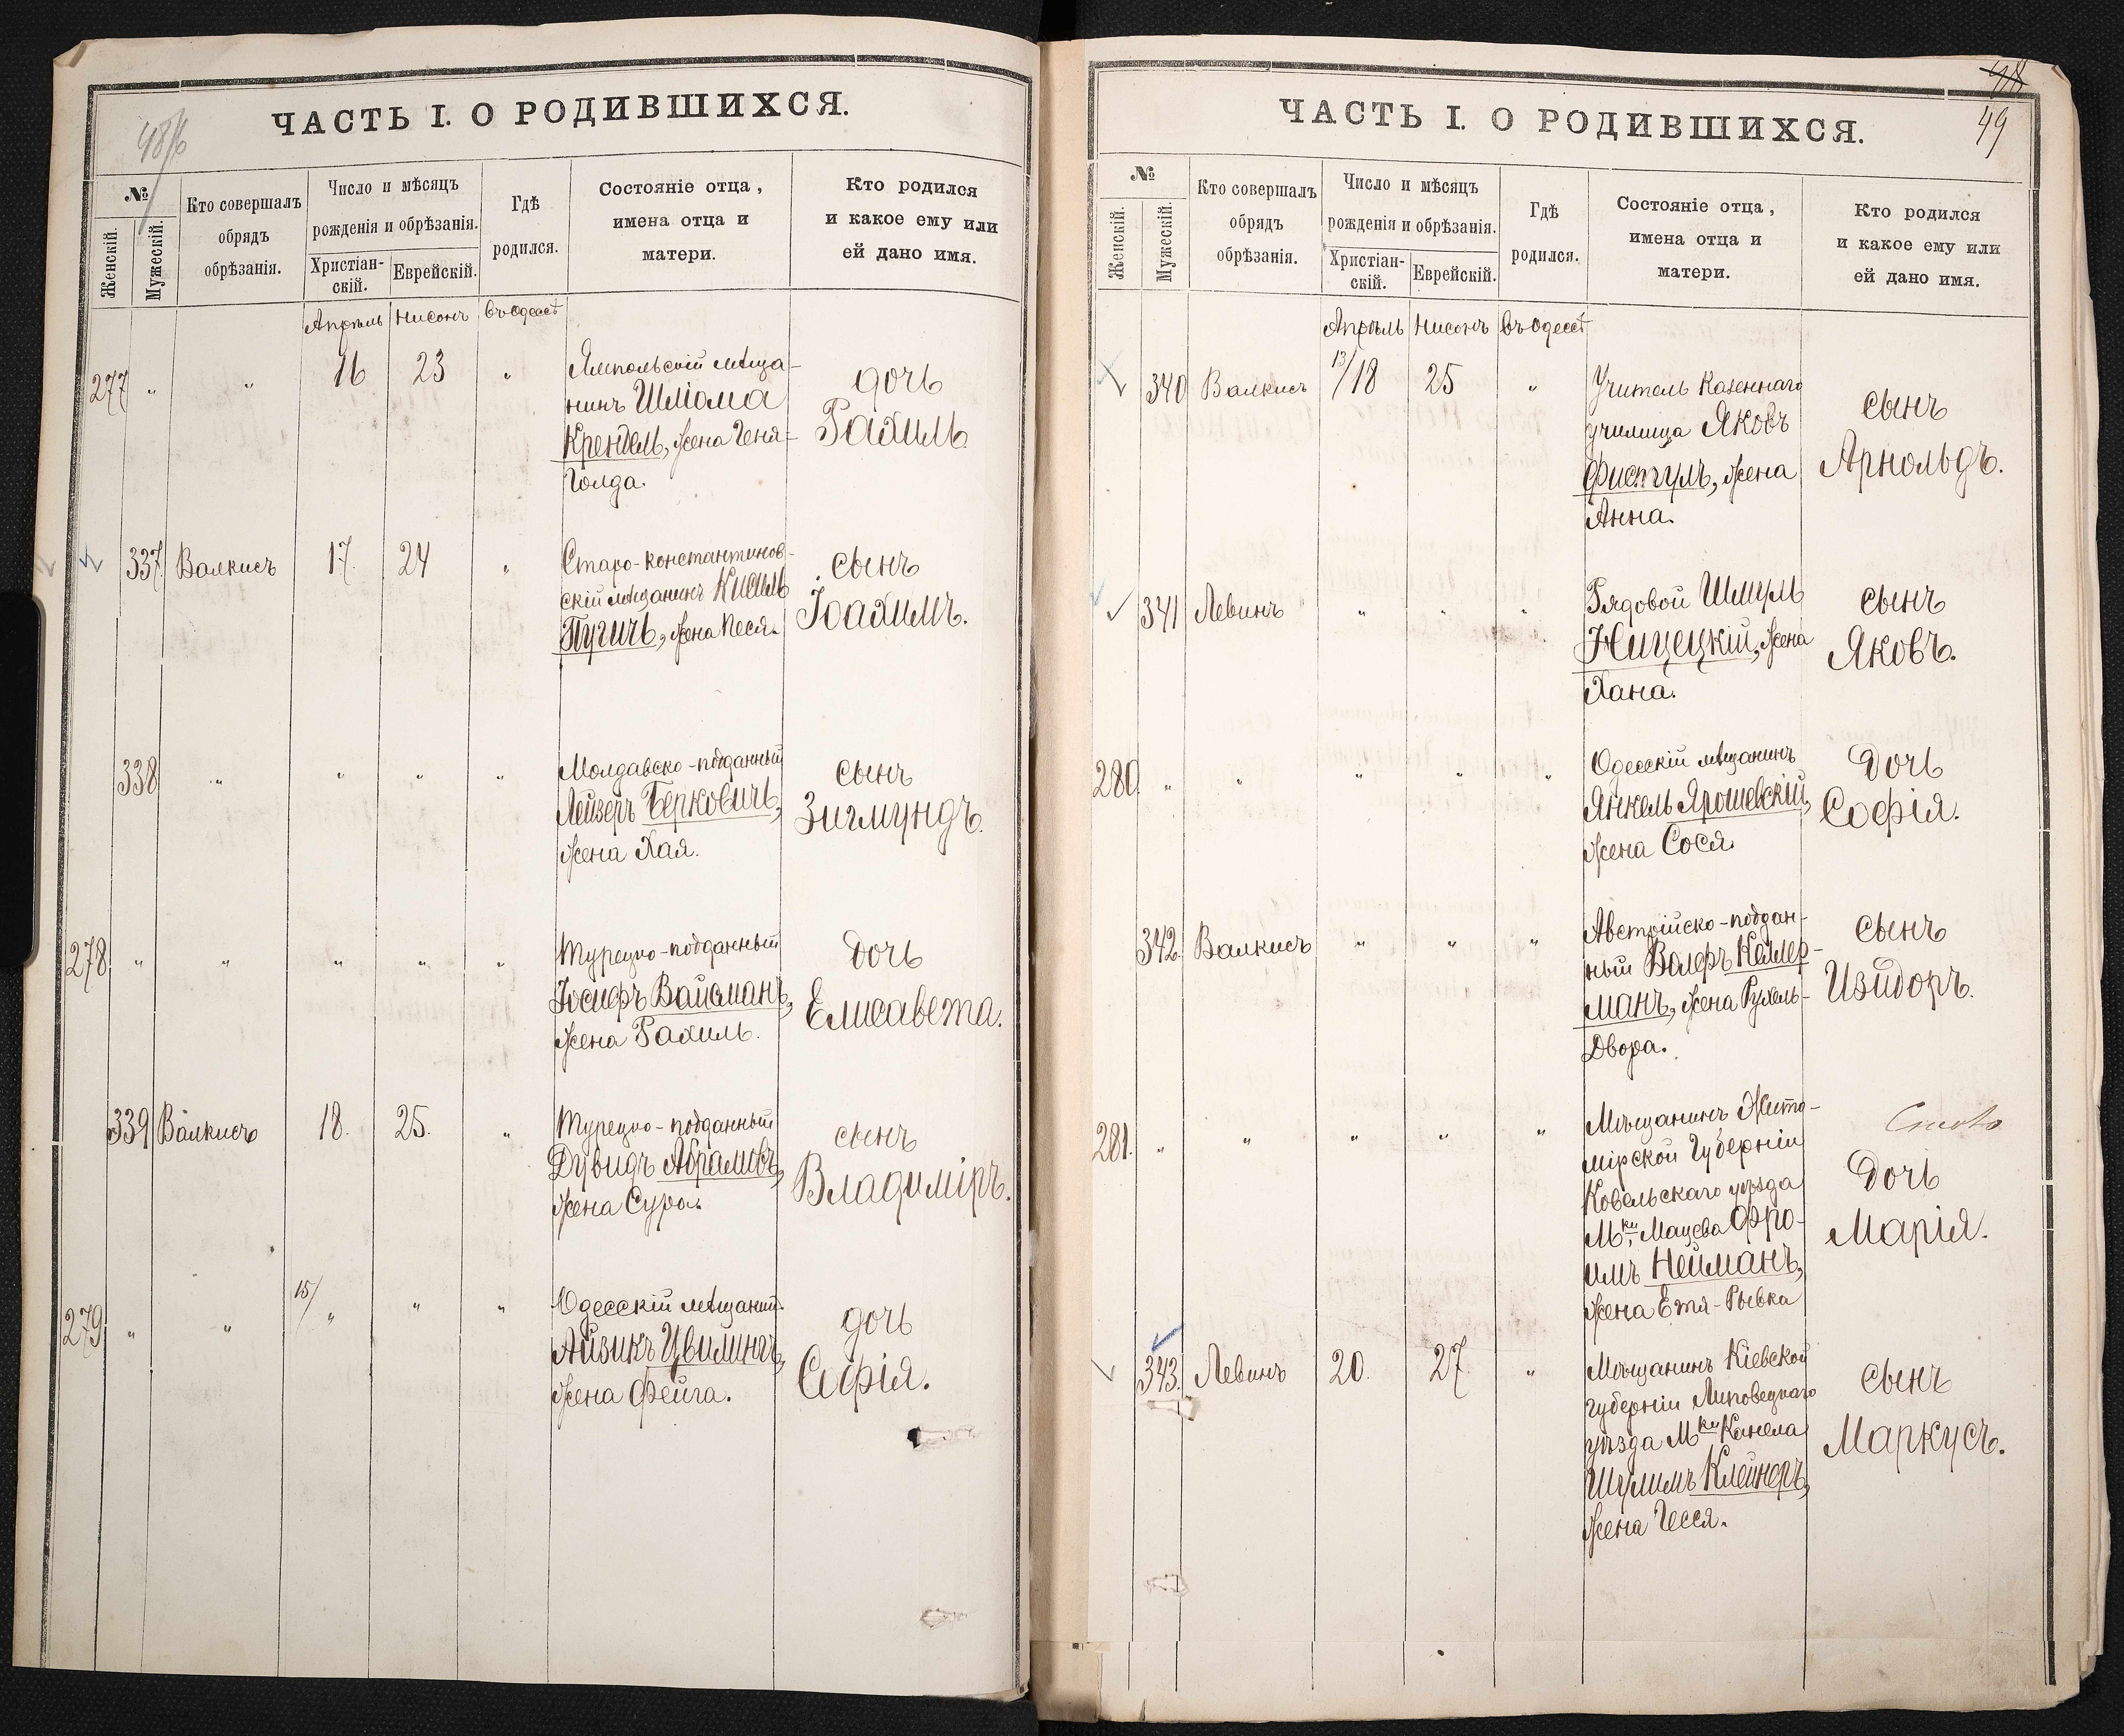 48/б
ЧАСТЬ I. О РОДИВШИХСЯ.
№
Женскій.
Мужескій.
Кто совершалъ
обрядъ
обрѣзанія.
Число и мѣсяцъ
рожденія и обрѣзанія.
Христіан-
скій.
Еврейскій.
Гдѣ
родился.
Состояніе отца,
имена отца и
матери.
Кто родился
и какое ему или
ей дано имя.
Апрѣль Нисонъ въ Одессѣ
277 " " 16 23 "
Ямпольскій мѣща-
нинъ Шліома
Крендель, жена Геня-
Голда.
дочь
Рахиль
337 Валкисъ 17. 24 "
Старо-константинов-
скій мѣщанинъ Кисиль
Пугичъ, жена Песя.
сынъ
Іоахимъ.
338 " " " "
Молдавско-подданный
Лейзеръ Берковичъ,
жена Хая.
сынъ
Зигмундъ.
278 " " " " "
Турецко-подданный
Іосифъ Вайсманъ,
жена Рахиль.
дочь
Елисавета.
339 Валкисъ 18. 25. "
Турецко-подданный
Дувидъ Абрамовъ,
жена Сура.
сынъ
Владиміръ.
279 " " 15/" " "
Одесскій мѣщанин.
Айзикъ Цвилингъ,
жена Фейга.
дочь
Софія.
98
49
ЧАСТЬ I. О РОДИВШИХСЯ.
№
Женскій.
Мужескій.
Кто совершалъ
обрядъ
обрѣзанія.
Число и мѣсяцъ
рожденія и обрѣзанія.
Христіан-
скій.
Еврейскій.
Гдѣ
родился.
Состояніе отца,
имена отца и
матери.
Кто родился
и какое ему или
ей дано имя.
Апрѣль Нисонъ въ Одессѣ
340 Валкисъ 13/18 25 "
Учитель Казеннаго
училища Яковъ
Фистуль, жена
Анна.
сынъ
Арнольдъ.
341 Левинъ " " "
Рядовой Шмуль
Ницецкій, жена
Хана.
сынъ
Яковъ.
280. " " " " "
Одесскій мѣщанинъ
Янкель Ярошевскій,
жена Сося.
дочь
Софія.
342. Валкисъ " " "
Австрійско-поддан-
ный Волфъ Келлер-
манъ, жена Рухель-
Двора.
сынъ
Изидоръ.
281. " " " " "
Мѣщанинъ Жито-
мірской Губерніи
Ковельскаго уѣзда
Мки Мацева Фро-
имъ Нейманъ,
жена Етя-Рывка
дочь
Марія.
343. Левинъ 20. 27. "
Мѣщанинъ Кіевской
губерніи Липовецкаго
уѣзда Мки Канела
Шулимъ Клейнеръ,
жена Гесся.
сынъ
Маркусъ.